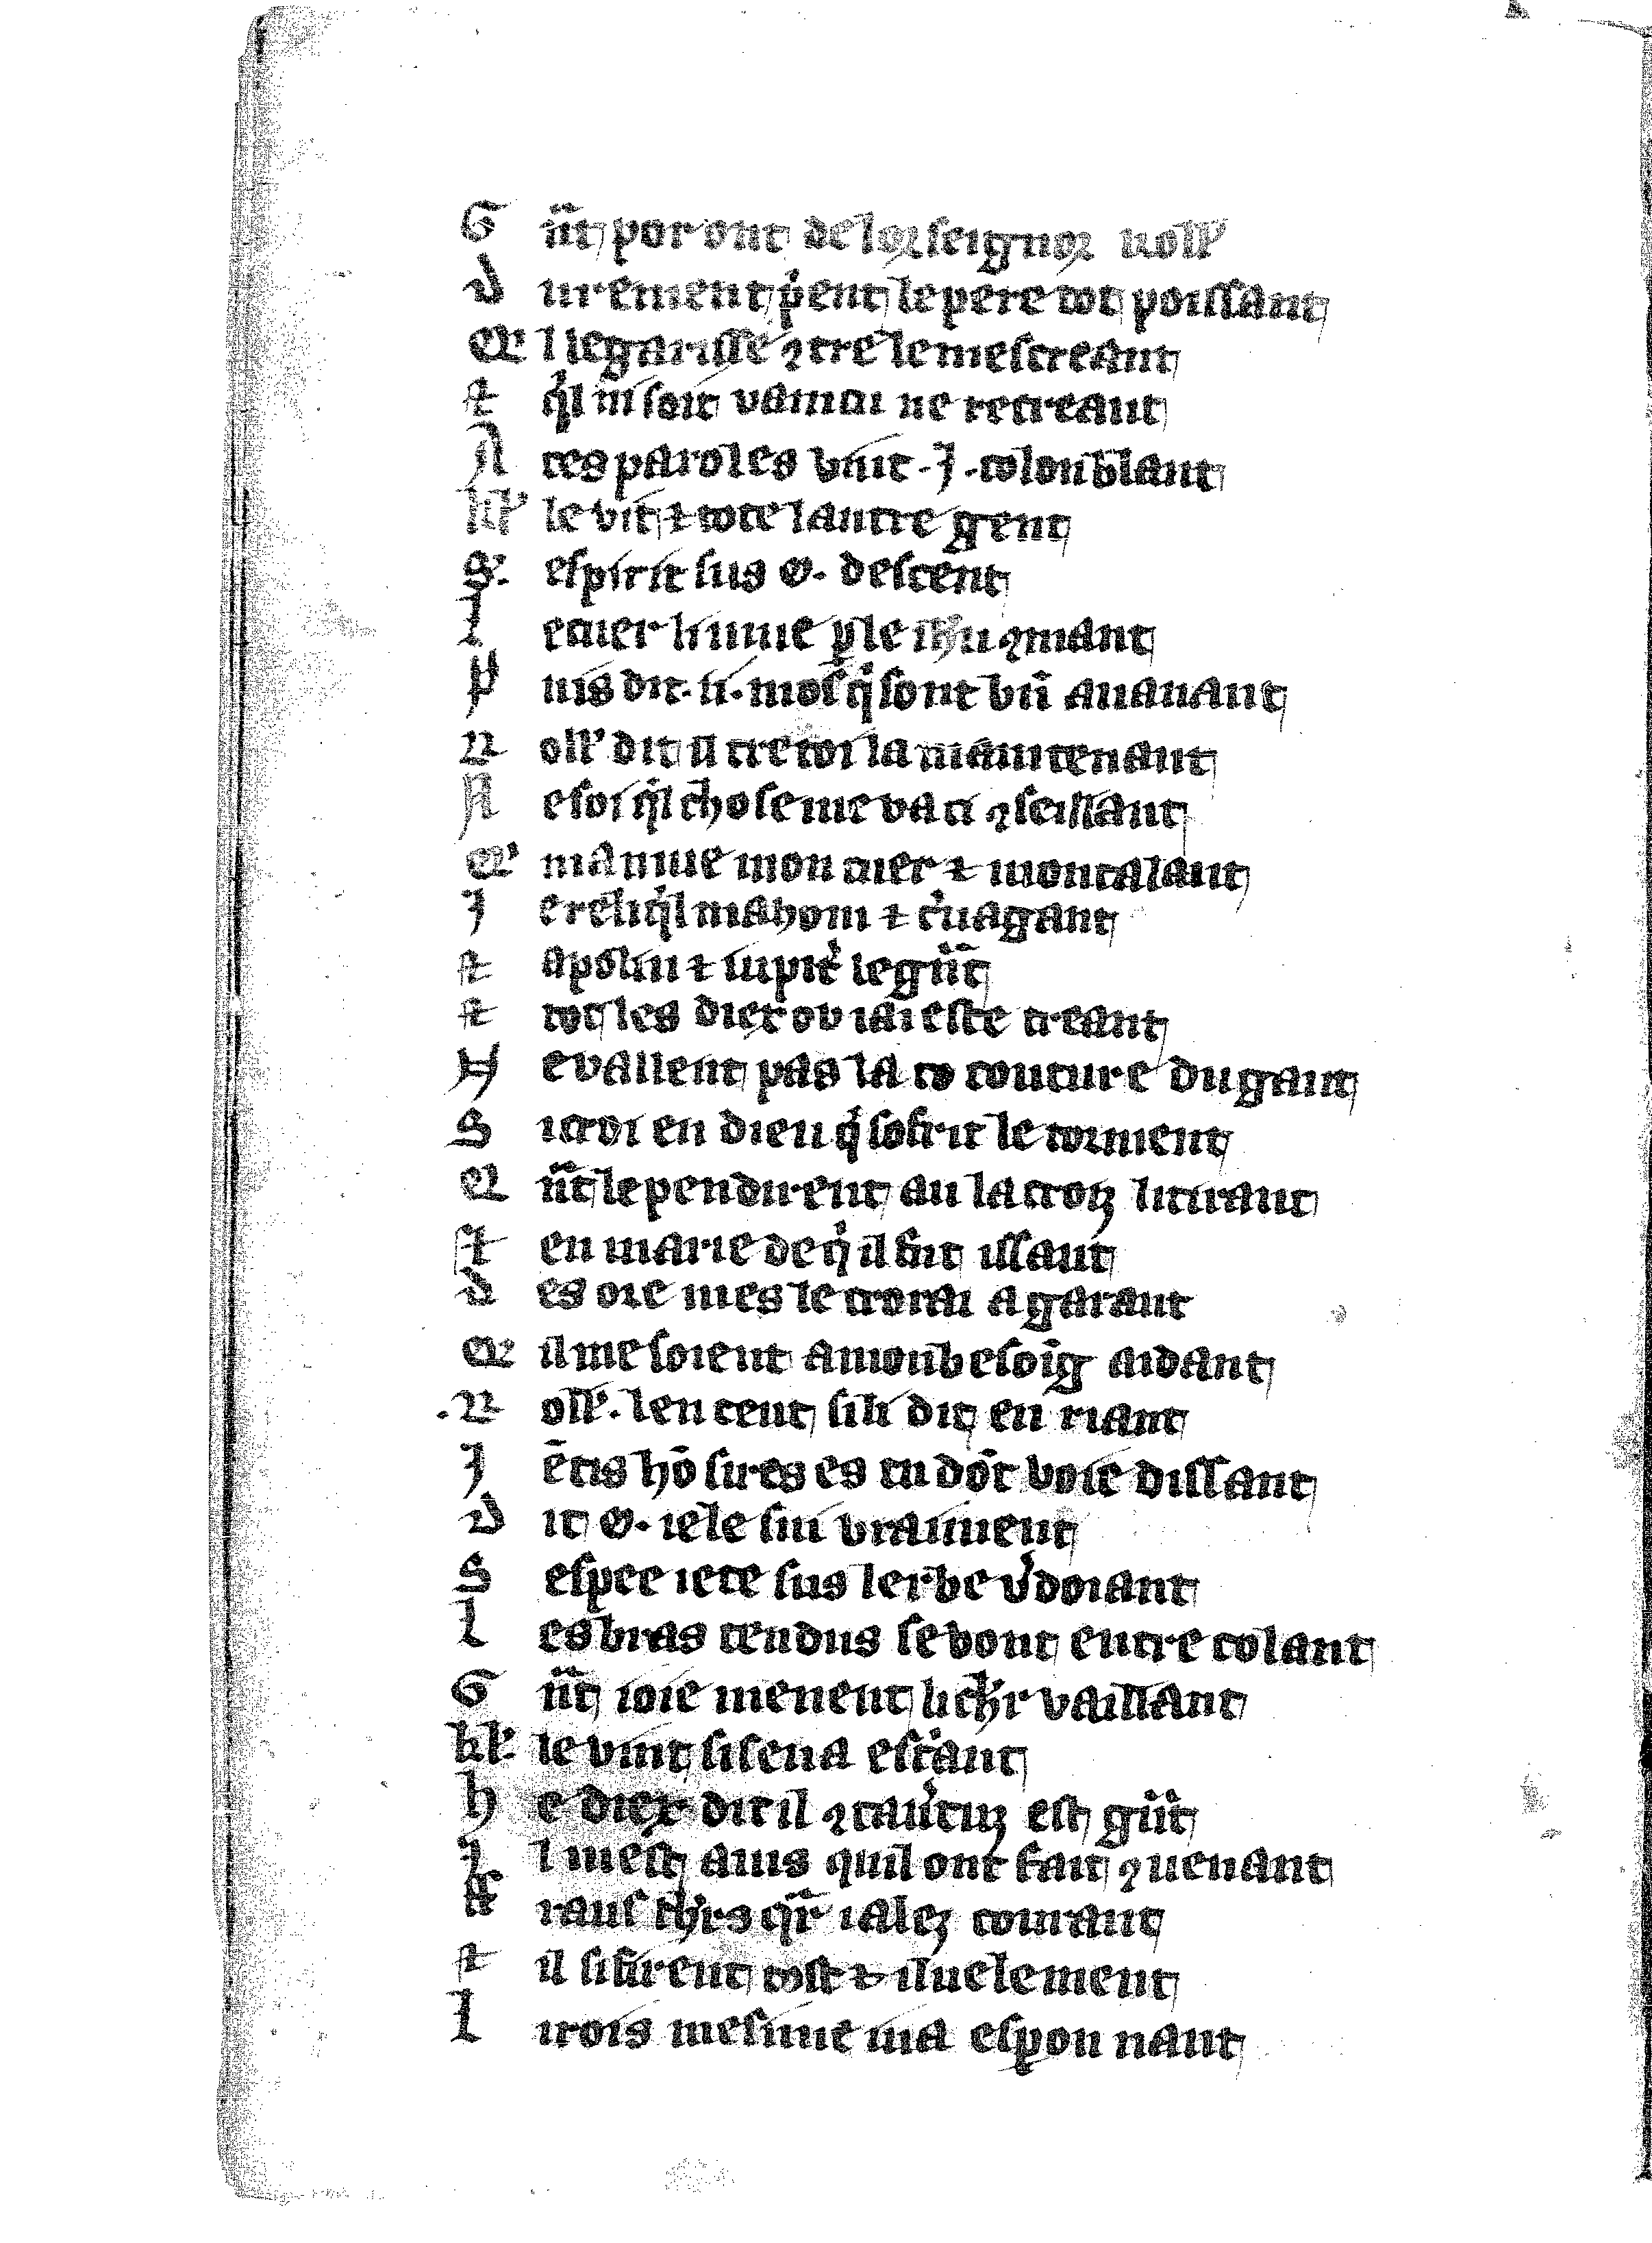 G nt por ont de lor seignor roll'
D urement pient le pere tot poissant
Q' l le garisse ꝯtre le mescreant
⁊ qil ni soit vamcu ne recreant
A ces paroles vint .J. colon blant
kll' le vit ⁊ tote lautre gent
S. espirit sus O. descent
L e cuer li mue p le ihu ꝯmant
P uis dit .ii. mos qi sont bn auanant
R oll' dit il tre toi la maintenant
N e soi ql chose me va ci ꝯseillant
Q' ma mue mon cuer ⁊ mon talant
J e reliqil mahom ⁊ t'uagant
⁊ apolin ⁊ iupit' le gnt
⁊ tot les diex ou iai este creant
N e vallent pas la co couture du gant
S i croi en dieu qi sofrit le torment
Q nt le pendirent au la croiz li tirant
⁊ en marie de qi il fut issant
D es ore mes le crorai a garant
Q' il me soient a mon besoig aidant
.R oll'. lentent si li dit en riant
J entis ho sires es tu dot voie dissant
D it O. ie le sui vraiment
S espee iete sus lerbe v'doiant
L es bras tendus se vont entre colant
G nt ioie menent li ch'r vaillant
kll'. le vint si sen a escriant
H e diex dit il ꝯ tau'tuz est gnt
J l mest auis quil ont fait ꝯuenant
Fr rans ch'rs qr i alez courant
⁊ il si firent tost ⁊ isnelement
L i rois mesime ina espon nant